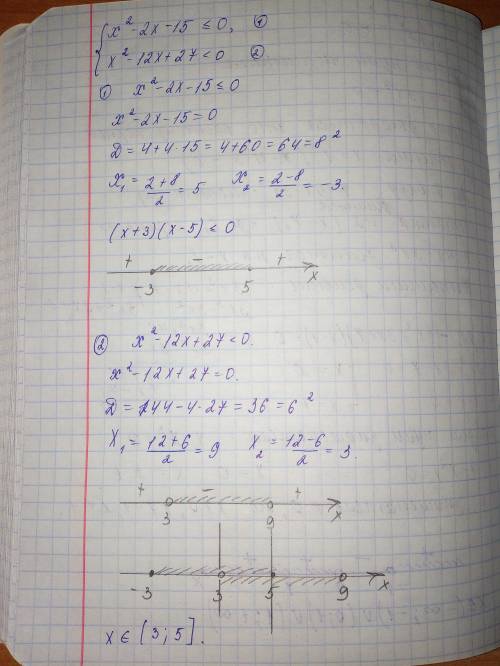 { x² - 2x - 15 ≤ 0, ①
{ x² - 12x + 27 < 0 ②
① x² - 2x - 15 ≤ 0
x² - 2x - 15 = 0
D = 4 + 4·15 = 4 + 60 = 64 = 8²
x₁ = (2+8)/2 = 5 x₂ = (2-8)/2 = -3.
(x+3)(x-5) ≤ 0
+ - +
-3 5 x
② x² - 12x + 27 < 0.
x² - 12x + 27 = 0.
D = 144 - 4·27 = 36 = 6²
x₁ = (12+6)/2 = 9 x₂ = (12-6)/2 = 3.
+ - +
3 9 x
-3 3 5 9 x
x ∈ (3; 5].